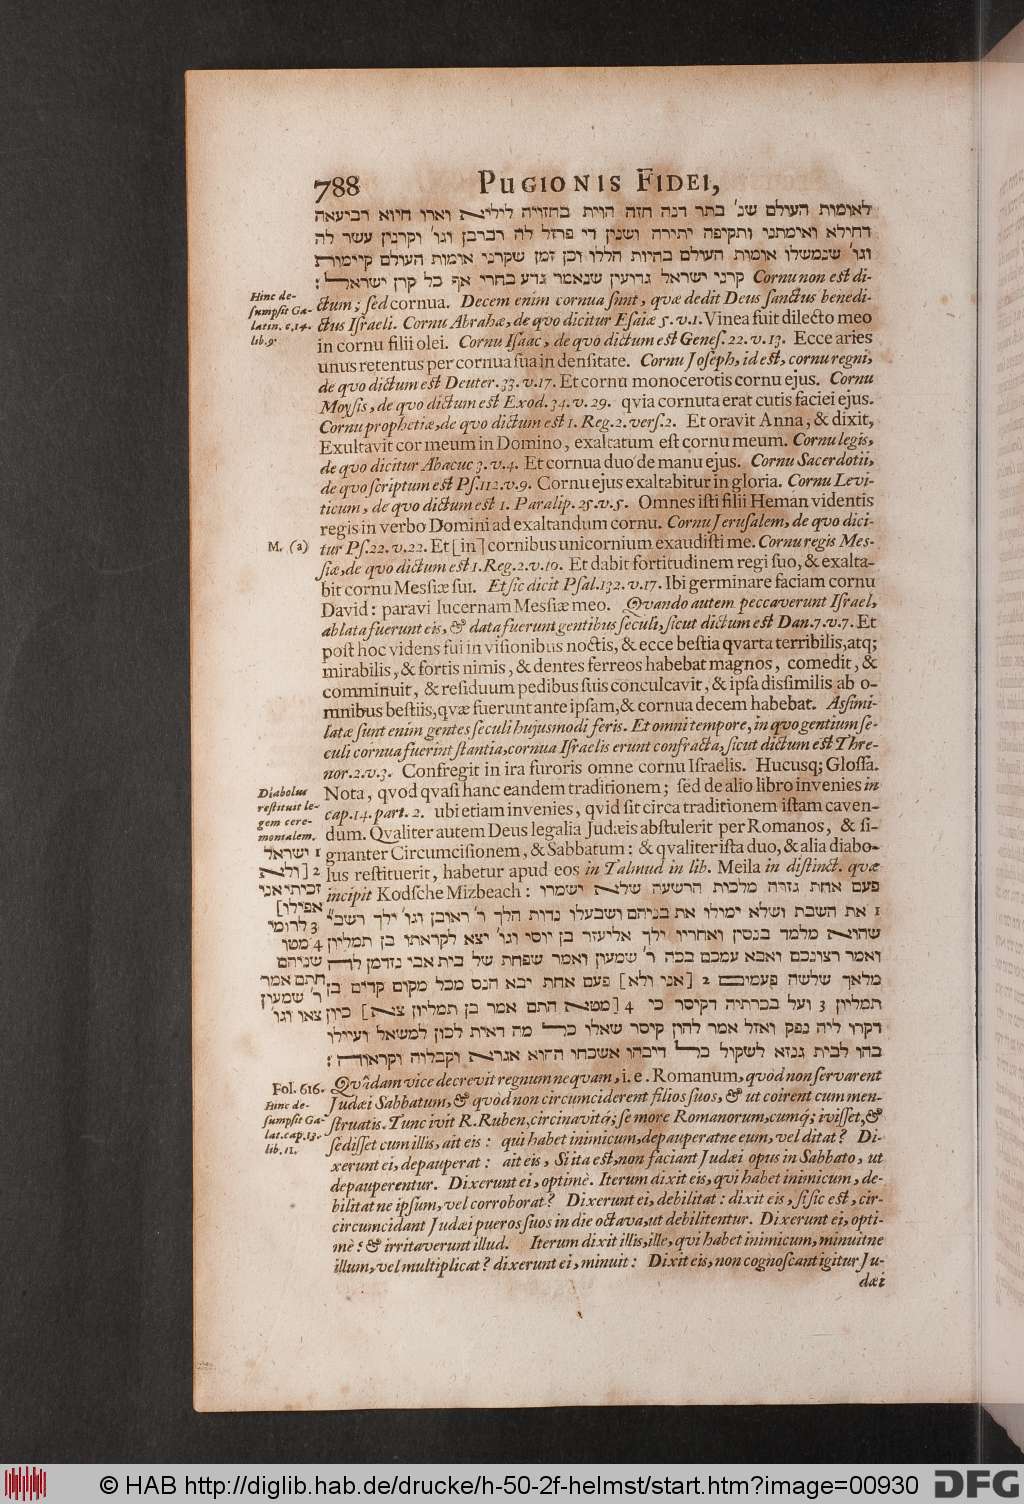 788 PUGIONIS FIDEI,
לאומות העולם שנ' בתר דנה חזה הוית בחזויה ליליא וארו חיוא רביעאה
דחילא ואימתני ותקיפה יתירה ושנין די פרזל לה רברבן וגו' וקרנין עשר לה
וגו' שנמשלו אומות העולם בחיות הללו וכן זמן שקרני אומות העולם קיימות
קרני ישראל גדועין שנאמר גדע בחרי אף כל קרן ישראל : Cornu non est di-
Hinc de-
sumpsit Ga-
latin. c.14.
lib.9.
ctum; sed cornua. Decem enim cornua sunt, qvæ dedit Deus sanctus benedi-
ctus Israeli. Cornu Abrahæ, de qvo dicitur Esaiæ 5. v.1. Vinea fuit dilecto meo
in cornu filii olei. Cornu Isaac, de qvo dictum est Genes. 22. v. 13. Ecce aries
unus retentus per cornua sua in densitate. Cornu Joseph, id est, cornu regni,
de qvo dictum est Deuter. 33. v.17. Et cornu monocerotis cornu ejus. Cornu
Moysis, de qvo dictum est Exod. 34. v. 29. qvia cornuta erat cutis faciei ejus.
Cornu prophetiæ, de qvo dictum est 1. Reg. 2. vers. 2. Et oravit Anna, & dixit,
Exultavit cor meum in Domino, exaltatum est cornu meum. Cornu legis,
de qvo dicitur Abacuc 3. v.4. Et cornua duo de manu ejus. Cornu Sacerdotii,
de qvo scriptum est Ps. 112. v.9. Cornu ejus exaltabitur in gloria. Cornu Levi-
ticum, de qvo dictum est 1. Paralip. 25. v.5. Omnes isti filii Heman videntis
regis in verbo Domini ad exaltandum cornu. Cornu Jerusalem, de qvo dici-
M. (a)
tur Ps. 22. v.22. Et [in] cornibus unicornium exaudisti me. Cornu regis Mes-
siæ, de qvo dictum est 1. Reg. 2. v.10. Et dabit fortitudinem regi suo, & exalta-
bit cornu Messiæ sui. Et sic dicit Psal. 132. v.17. Ibi germinare faciam cornu
David: paravi lucernam Messiæ meo. Qvando autem peccaverunt Israel,
ablata fuerunt eis, & data fuerunt gentibus seculi, sicut dictum est Dan. 7. v.7. Et
post hoc videns fui in visionibus noctis, & ecce bestia qvarta terribilis, atq;
mirabilis, & fortis nimis, & dentes ferreos habebat magnos, comedit, &
comminuit, & residuum pedibus suis conculcavit, & ipsa dissimilis ab o-
mnibus bestiis, qvæ fuerunt ante ipsam, & cornua decem habebat. Assimi-
latæ sunt enim gentes seculi hujusmodi feris. Et omni tempore, in qvo gentium se-
culi cornua fuerint stantia, cornua Israelis erunt confracta, sicut dictum est Thre-
nor. 2. v. 3. Confregit in ira furoris omne cornu Israelis. Hucusq; Glossa.
Diabolus
restituit le-
gem cere-
monialem.
Nota, qvod qvasi hanc eandem traditionem; sed de alio libro invenies in
cap. 14. part. 2. ubi etiam invenies, qvid sit circa traditionem istam caven-
dum. Qvaliter autem Deus legalia Judæis abstulerit per Romanos, & si-
gnanter Circumcisionem, & Sabbatum: & qvaliter ista duo, & alia diabo-
lus restituerit, habetur apud eos in Talmud in lib. Meila in distinct. qvæ
incipit Kodsche Mizbeach : פעם אחת גזרה מלכות הרשעה שלא ישמרו
1 ישראל
2 [ולא
זכיתי אני
אפילו]
3 לרומי
4 מטו
שניהם
חתם אמר
ר' שמעון
צאו וגו'
1 את השבת ושלא ימולו את בניהם ושבעלו נדות הלך ר' ראובן וגו' ילך רשב"י
שהוא מלמד בנסין ואחריו ילך אליעזר בן יוסי וגו' יצא לקראתו בן תמליון
ואמר רצונכם ואבא עמכם בכה ר' שמעון ואמר שפחת של בית אבי נזדמן לה
מלאך שלשה פעמים 2 [אני ולא] פעם אחת יבא הנס מכל מקום קדים בן
תמליון 3 ועל בברתיה דקיסר כי 4 [מטא התם אמר בן תמליון צא] כיון
דקרו ליה נפק ואזל אמר להון קיסר שאלו כל מה דאית לכון למשאל ועיילו
בהו לבית גנזא לשקול כל דיבהו אשכחו ההוא אגרא וקבלוה וקראוה :
Fol. 616.
Hinc de-
sumpsit Ga-
lat. cap. 13.
lib. 11.
Qvadam vice decrevit regnum neqvam, i. e. Romanum, qvod non servarent
Judæi Sabbatum, & qvod non circumciderent filios suos, & ut coirent cum men-
struatis. Tunc ivit R. Ruben, circinavitq; se more Romanorum, cumq; ivisset, &
sedisset cum illis, ait eis: qui habet inimicum, depauperatne eum, vel ditat? Di-
xerunt ei, depauperat: ait eis, Si ita est, non faciant Judæi opus in Sabbato, ut
depauperentur. Dixerunt ei, optimè. Iterum dixit eis, qvi habet inimicum, de-
bilitatne ipsum, vel corroborat? Dixerunt ei, debilitat: dixit eis, si sic est, cir-
circumcidant Judæi pueros suos in die octava, ut debilitentur. Dixerunt ei, opti-
mè: & irritaverunt illud. Iterum dixit illis, ille, qvi habet inimicum, minuitne
illum, vel multiplicat? dixerunt ei, minuit: Dixit eis, non cognoscant igitur Ju-
dæi
© HAB http://diglib.hab.de/drucke/h-50-2f-helmst/start.htm?image=00930 DFG